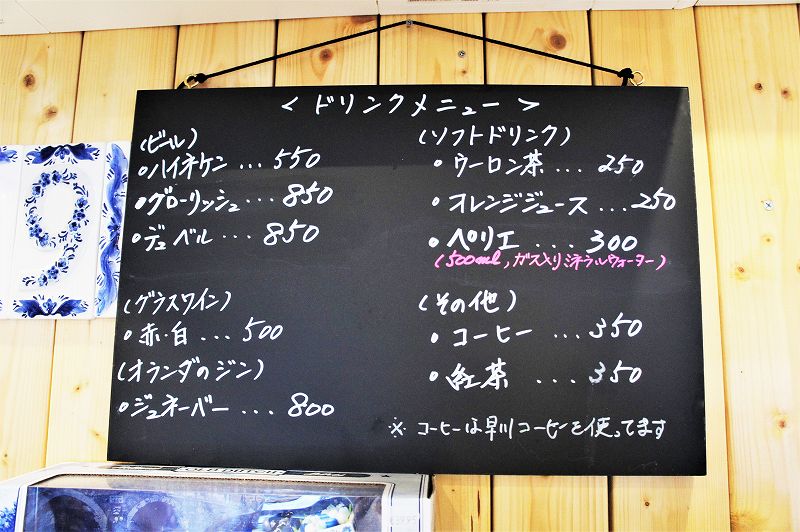 <ドリンクメニュー>
(ビール)
・ハイネケン...550
・グローリッシュ...850
・デュベル...850
(グラスワイン)
・赤・白...500
(オランダのジン)
・ジュネーバー...800
(ソフトドリンク)
・ウーロン茶...250
・オレンジジュース...250
・ペリエ...300
(500ml,ガス入りミネラルウォーター)
(その他)
・コーヒー...350
・紅茶...350
※コーヒーは早川コーヒーを使ってます
9